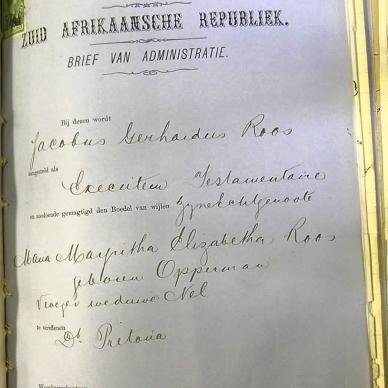 ZUID AFRIKAANSCHE REPUBLIEK.
BRIEF VAN ADMINISTRATIE.
Bij dezen wordt
Jacobus Gerhardus Roos
aangesteld als
Executeur Testamentaire
en zoolsnoe gemagtigd den Boedel van wijlen Zyne Echtgenoote
Maria Margritha Elizabetha Roos
geboren Opperman
Vroeger weduwe Nel
te vereffenen
Db. Pretoria